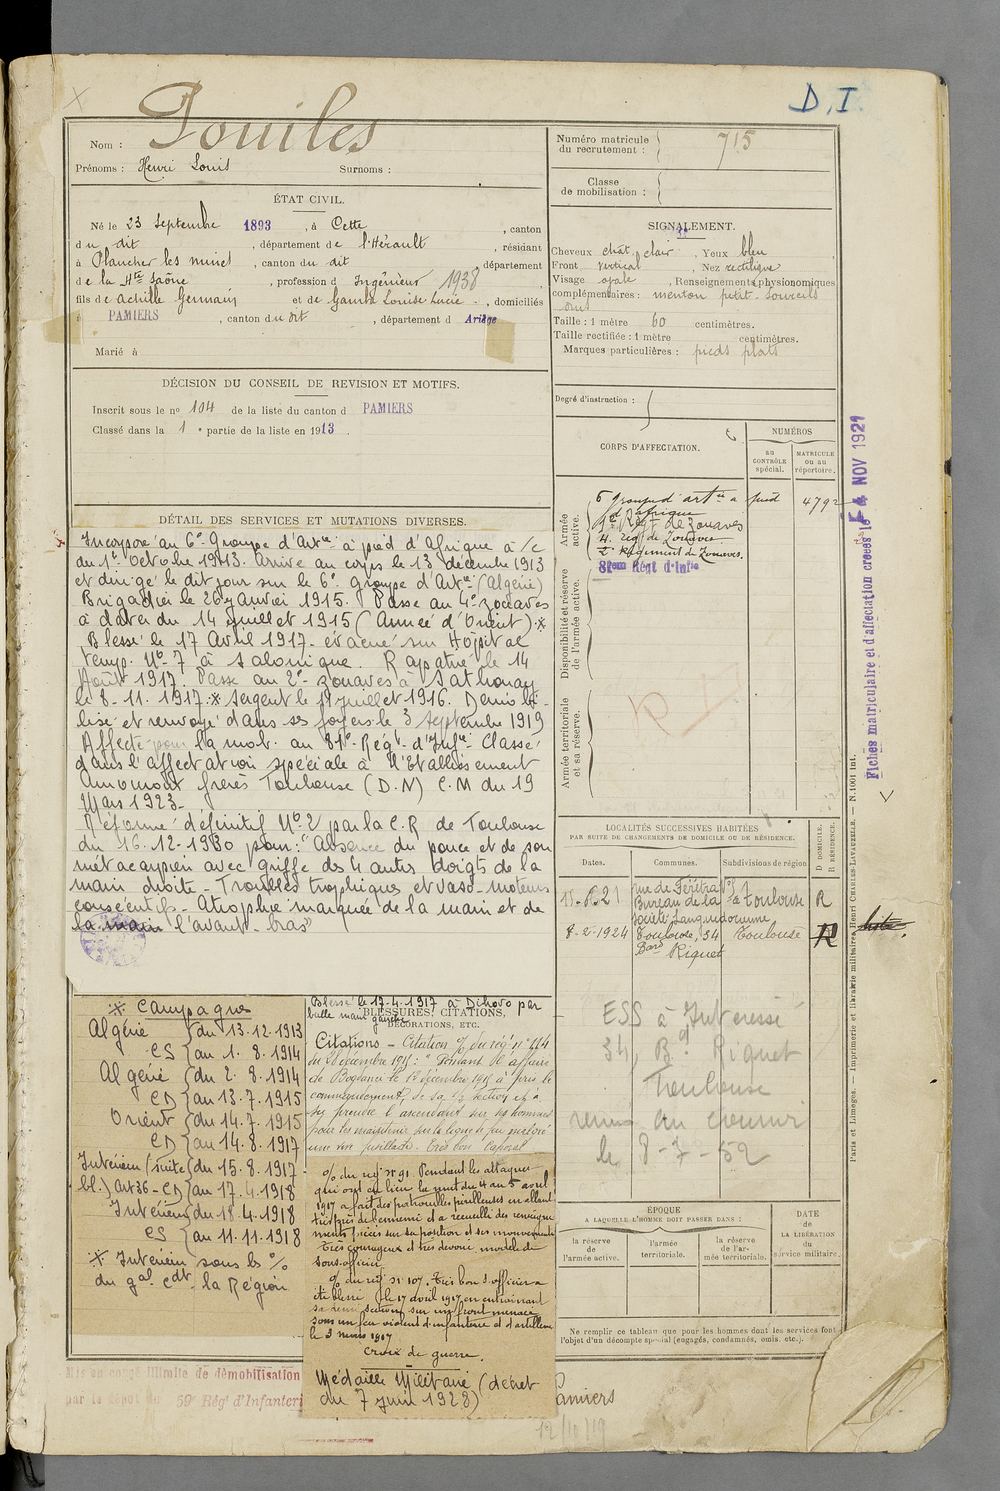 D, I
Nom : Pouiles
Prénoms : Henri Louis Surnoms :
ÉTAT CIVIL.
Né le 23 Septembre 1893, à Cette, canton
du dit, département de l'Hérault, résidant
à Plancher les mines, canton du dit département
de la Hte Saône, profession d Ingénieur 1938
fils de Achille Germain et de Gamb Louise Lucie, domiciliés
à PAMIERS, canton du dit, département d Ariège
Marié à
DÉCISION DU CONSEIL DE REVISION ET MOTIFS.
Inscrit sous le no 104 de la liste du canton d PAMIERS
Classé dans la 1e partie de la liste en 1913
DÉTAIL DES SERVICES ET MUTATIONS DIVERSES.
Incorporé au 6e Groupe d'Artie à pied d'Afrique à /c
du 1er Octobre 1913. Arrivé au corps le 13 décembre 1913
et dirigé le dit jour sur le 6e groupe d'Artie (Algérie)
Brigadier le 26 janvier 1915. Passé au 4e zouaves
à dater du 14 juillet 1915 (Armée d'Orient).*
Blessé le 17 Avril 1917. évacué sur Hôpital
temp. No 7 à Salonique. Rapatrié le 14
Août 1917. Passé au 2e zouaves à Sathonay
le 8-11.1917.* Sergent le 1er juillet 1916. Démobi-
lisé et renvoyé dans ses foyers le 3 Septembre 1919
Affecté pour la mob. au 81e Régt d'Infie Classé
dans l'affectation spéciale à l'Etablissement
Amouroux frères Toulouse (D.N) C.M du 19
Mars 1923-
Réformé définitif No 2 par la C.R de Toulouse
du 16-12-1930 pour: "Absence du pouce et de son
métacarpien avec griffe des 4 autres doigts de la
main droite - Troubles trophiques et vaso-moteurs
consécutifs - Atrophie marquée de la main et de
la main l'avant-bras"
* Campagnes
Algérie (du 13.12.1913
CS (au 1.8.1914
Algérie (du 2.8.1914
CD (au 13.7.1915
Orient (du 14.7.1915
CD (au 14.8.1917
Intérieur (suite (du 15.8.1917
bl.) Art 36 - CD (au 17.4.1918
Intérieur du 18.4.1918
CS (au 11.11.1918
* Intérieur sous le %
du gal Cdt la Région
Blessé le 17-4-1917 à Dihovo par
balle main gauche
BLESSURES, CITATIONS,
DÉCORATIONS, ETC.
Citations - Citation % du régt no 114
du 28 décembre 1915: " Pendant l'affaire
de Bogdanci le 1er décembre 1915 a pris le
commandement de sa 1/2 section et a
su prendre l'ascendant sur ses hommes
pour les maintenir sur la ligne de feu malgré
une vive fusillade. Très bon caporal
% du régt no 91. Pendant les attaques
qui ont eu lieu la nuit du 4 au 5 avril
1917 a fait des patrouilles périlleuses en allant
très près de l'ennemi et a recueilli des renseigne-
ments précis sur sa position et ses mouvements
Très courageux et très dévoué modèle de
sous-officier
% du régt no 107. Très bon s.officier a
été blessé le 17 avril 1917 en entraînant
sa demi section sur un front menacé
sous un feu violent d'infanterie et d'artillerie
le 3 mars 1917
Croix de guerre.
Médaille Militaire (décret
du 7 juin 1928)
Mis en congé illimité de démobilisation
par le dépôt du 59e Régt d'Infanterie
Pamiers
12/10/19
Numéro matricule du recrutement : 715
Classe de mobilisation :
SIGNALEMENT.
Cheveux chât. clair. Yeux bleu
Front vertical, Nez rectiligne
Visage ovale, Renseignements physionomiques
complémentaires : menton petit - sourcils
Taille : 1 mètre 60 centimètres.
Taille rectifiée : 1 mètre centimètres.
Marques particulières : pieds plats
Degré d'instruction :
CORPS D'AFFECTATION.
NUMÉROS
AU CONTRÔLE spécial.
MATRICULE ou au répertoire.
Armée active.
Disponibilité et réserve de l'armée active.
Armée territoriale et sa réserve.
6e groupe d'artie à pied 4792
d'afrique
Régt de Zouaves
4e régt de Zouaves
2e Régiment de Zouaves.
81eme Régt d'Infie
R
LOCALITÉS SUCCESSIVES HABITÉES
PAR SUITE DE CHANGEMENTS DE DOMICILE OU DE RÉSIDENCE.
D DOMICILE. R RÉSIDENCE.
Dates. Communes. Subdivisions de région
15-6.21 rue de Férétra No 51
Bureau de la à Toulouse R
Société Languedocienne
8-2-1924 Toulouse, 34 Toulouse R
Bard Riquet
ESS à Intéressé
34, Bd Riquet
Toulouse
remis au courrier
le 8-7-52
ÉPOQUE
A LAQUELLE L'HOMME DOIT PASSER DANS :
la réserve de l'armée active.
l'armée territoriale.
la réserve de l'armée territoriale.
DATE DE LA LIBÉRATION du service militaire.
Ne remplir ce tableau que pour les hommes dont les services font
l'objet d'un décompte spécial (engagés, condamnés, omis. etc.).
Fiches matriculaire et d'affectation créées le - 4 NOV 1921
Paris et Limoges. — Imprimerie et librairie militaires Henri CHARLES-LAVAUZELLE. — N. 1001 int.